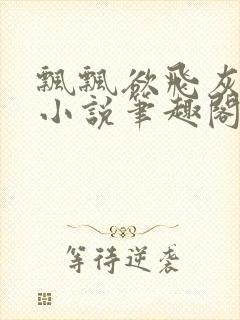 飄飄欲飛灰
小說筆趣閣
等待逆袭